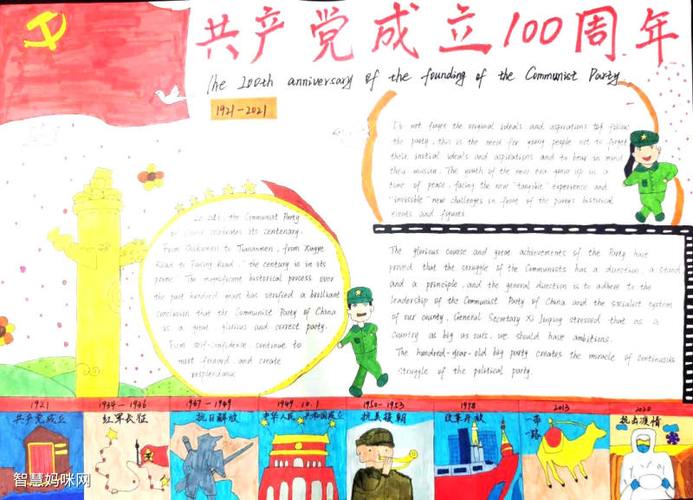 共产党成立100周年
The 100th anniversary of the founding of the Communist Party
1921-2021
Do not forget the original ideals and aspirations to follow
the party, this is the need for young people not to forget
their initial ideals and aspirations and to bear in mind
their mission. The youth of the new era grew up in a
time of peace, facing the new "tangible" experience and
"invisible" new challenges in front of the party's historical
events and figures
In 2021, the Communist Party
of China celebrates its centenary.
From to Tiananmen, from Xingye
Road to Road, the century is in its
prime. The magnificent historical process over
the past hundred years has verified a brilliant
conclusion that the Communist Party of China
is a great, glorious and correct party.
From self-confidence continue to
move forward and create
resplendence
The glorious course and great achievements of the Party have
proved that the struggle of the Communists has a direction, a stand
and a principle, and the general direction is to adhere to the
leadership of the Communist Party of China and the socialist system
of our country. General Secretary Xi Jinping stressed that as a
country as big as ours, we should have ambitions.
The hundred-year-old big party creates the miracle of continuous
struggle of the political party.
1921
共产党成立
1934-1936
红军长征
1937-1945
抗日解放
1949.10.1
中华人民共和国成立
1950-1953
抗美援朝
1978
改革开放
2013
一带一路
2020
抗击疫情
智慧妈咪网